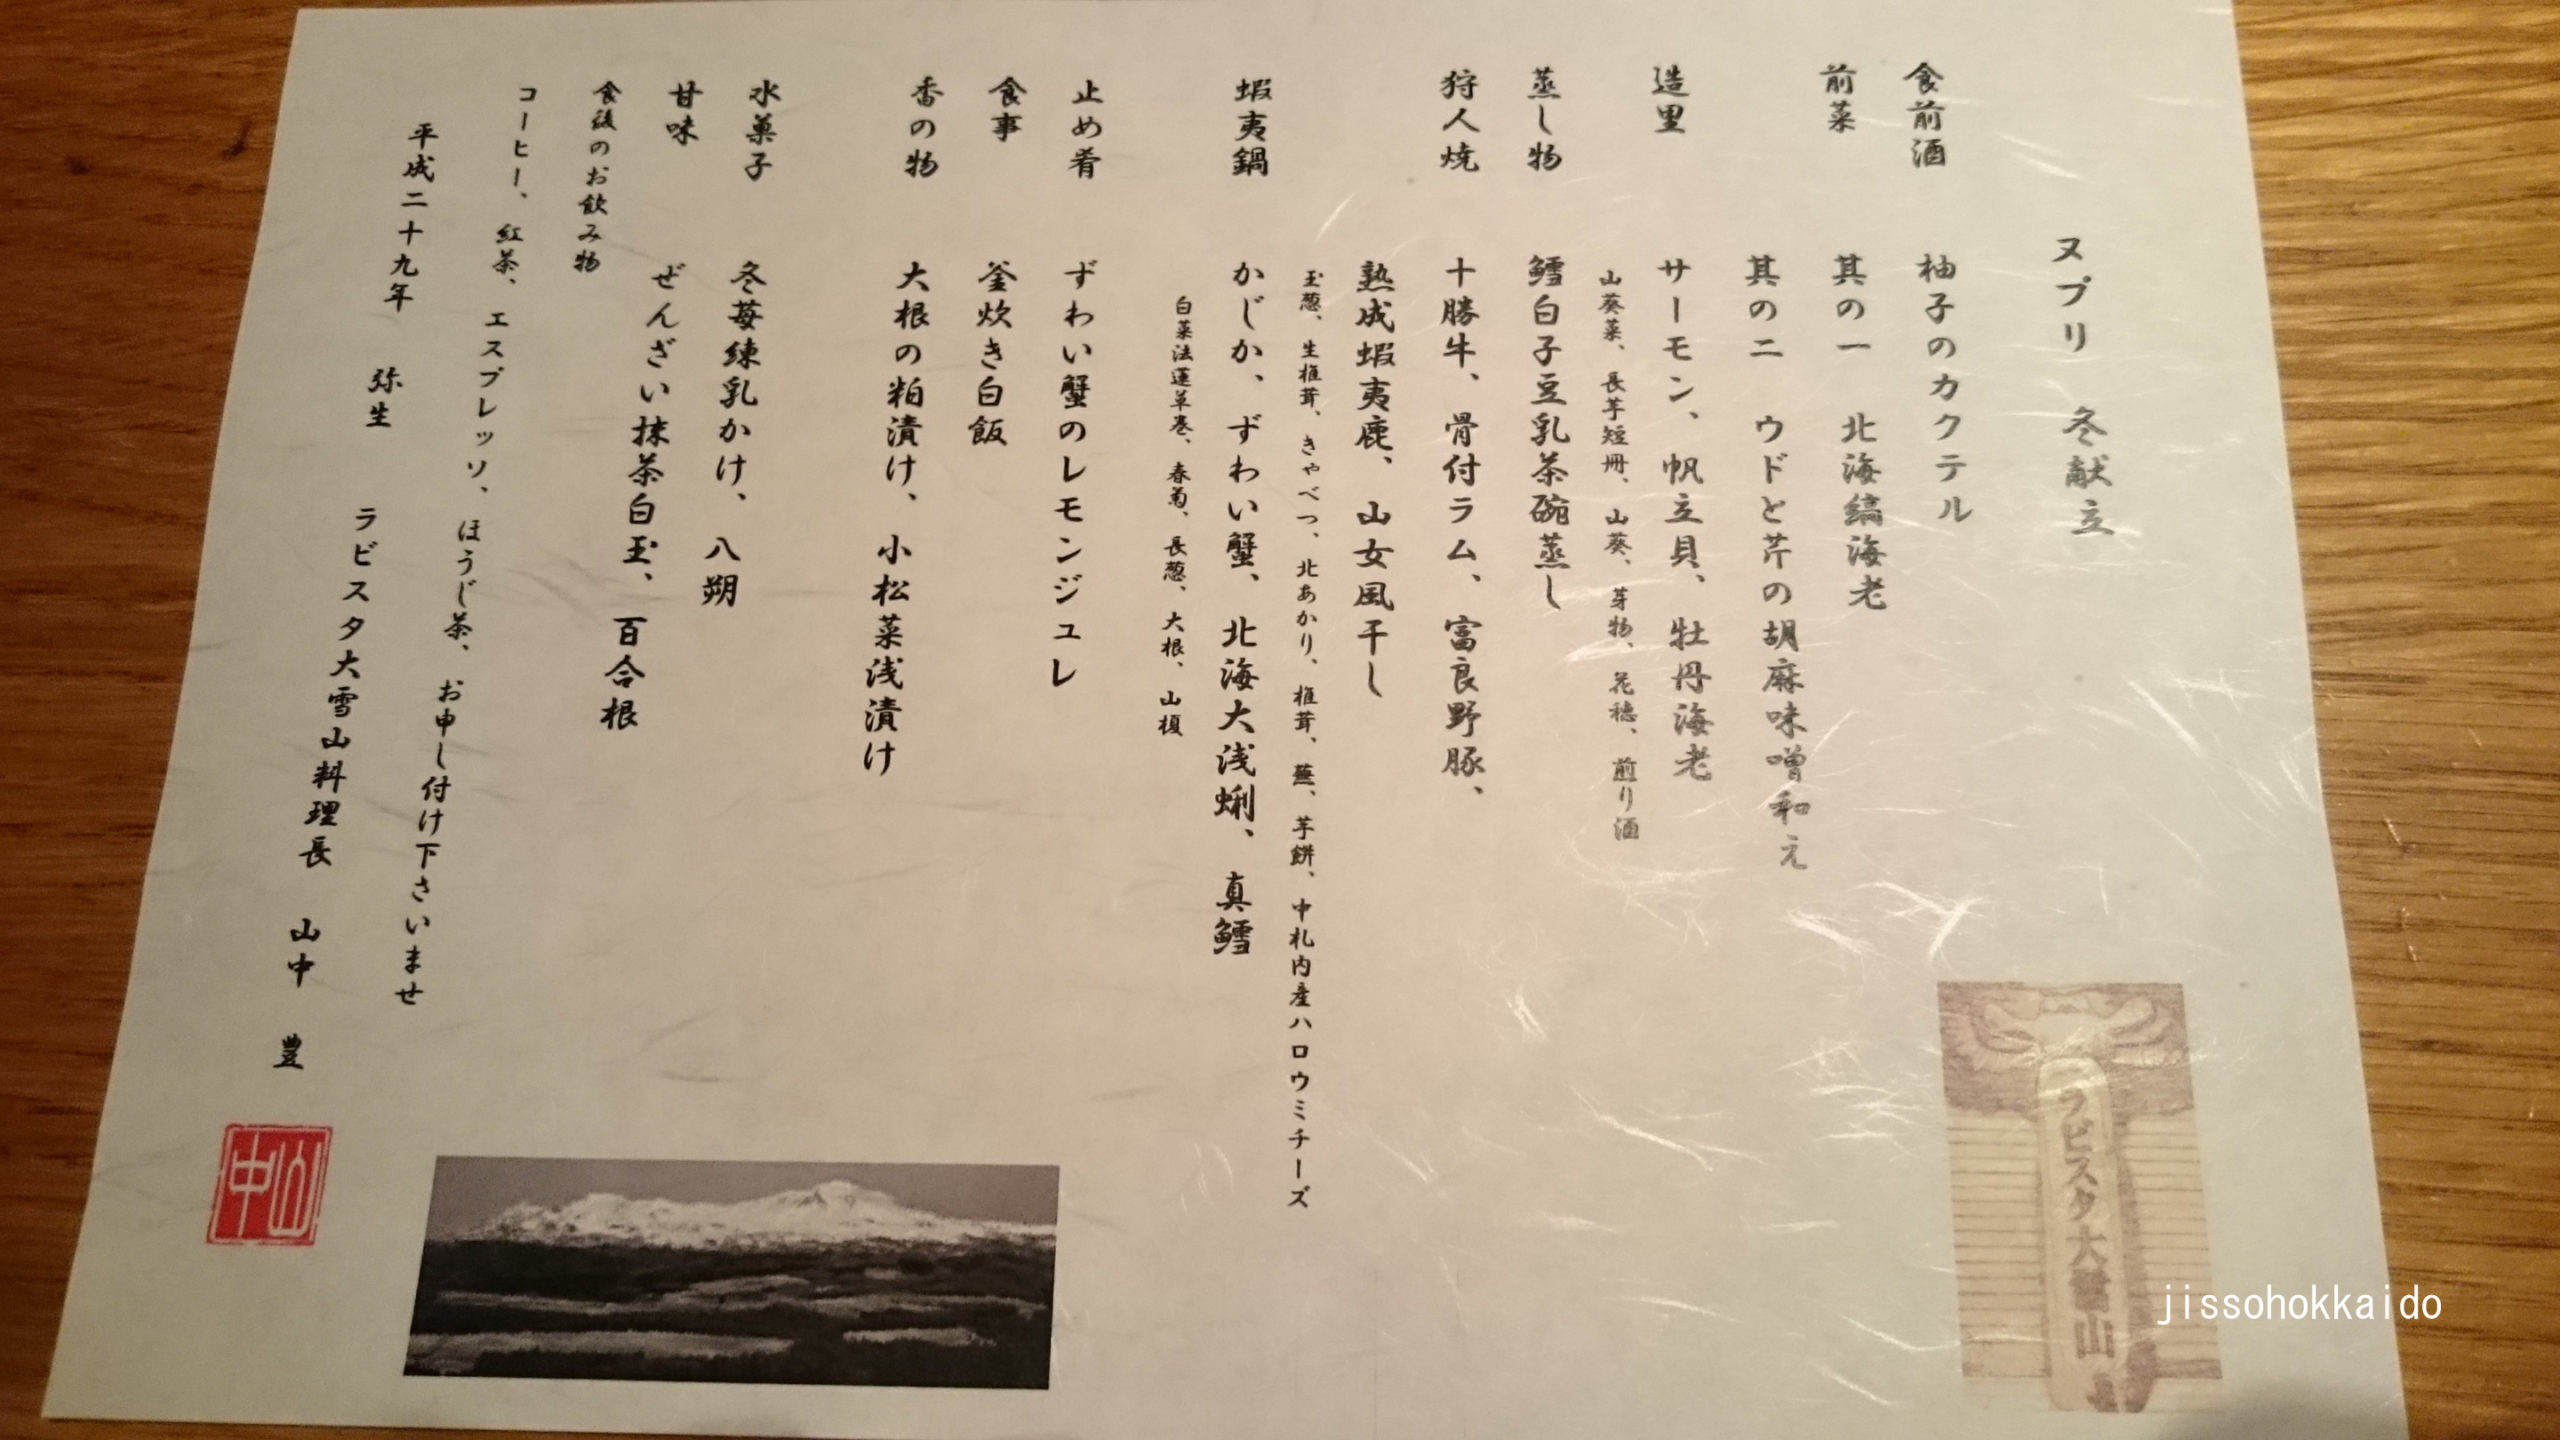 ヌプリ 冬献立
食前酒 柚子のカクテル
前菜 其の一 北海縞海老
其の二 ウドと芹の胡麻味噌和え
造里 サーモン、帆立貝、牡丹海老
山葵菜、長芋短冊、山葵、芽物、花穂、煎り酒
蒸し物 鱈白子豆乳茶碗蒸し
狩人焼 十勝牛、骨付ラム、富良野豚、
熟成蝦夷鹿、山女風干し
玉葱、生椎茸、きゃべつ、北あかり、椎茸、蕪、芋餅、中札内産ハロウミチーズ
蝦夷鍋 かじか、ずわい蟹、北海大浅蜊、真鱈
白菜法蓮草巻、春菊、長葱、大根、山榎
止め肴 ずわい蟹のレモンジュレ
食事 釜炊き白飯
香の物 大根の粕漬け、小松菜浅漬け
水菓子 冬苺練乳かけ、八朔
甘味 ぜんざい抹茶白玉、百合根
食後のお飲み物
コーヒー、紅茶、エスプレッソ、ほうじ茶、お申し付け下さいませ
平成二十九年 弥生 ラビスタ大雪山料理長 山中 豊
山中
ラビスタ大雪山
jissohokkaido